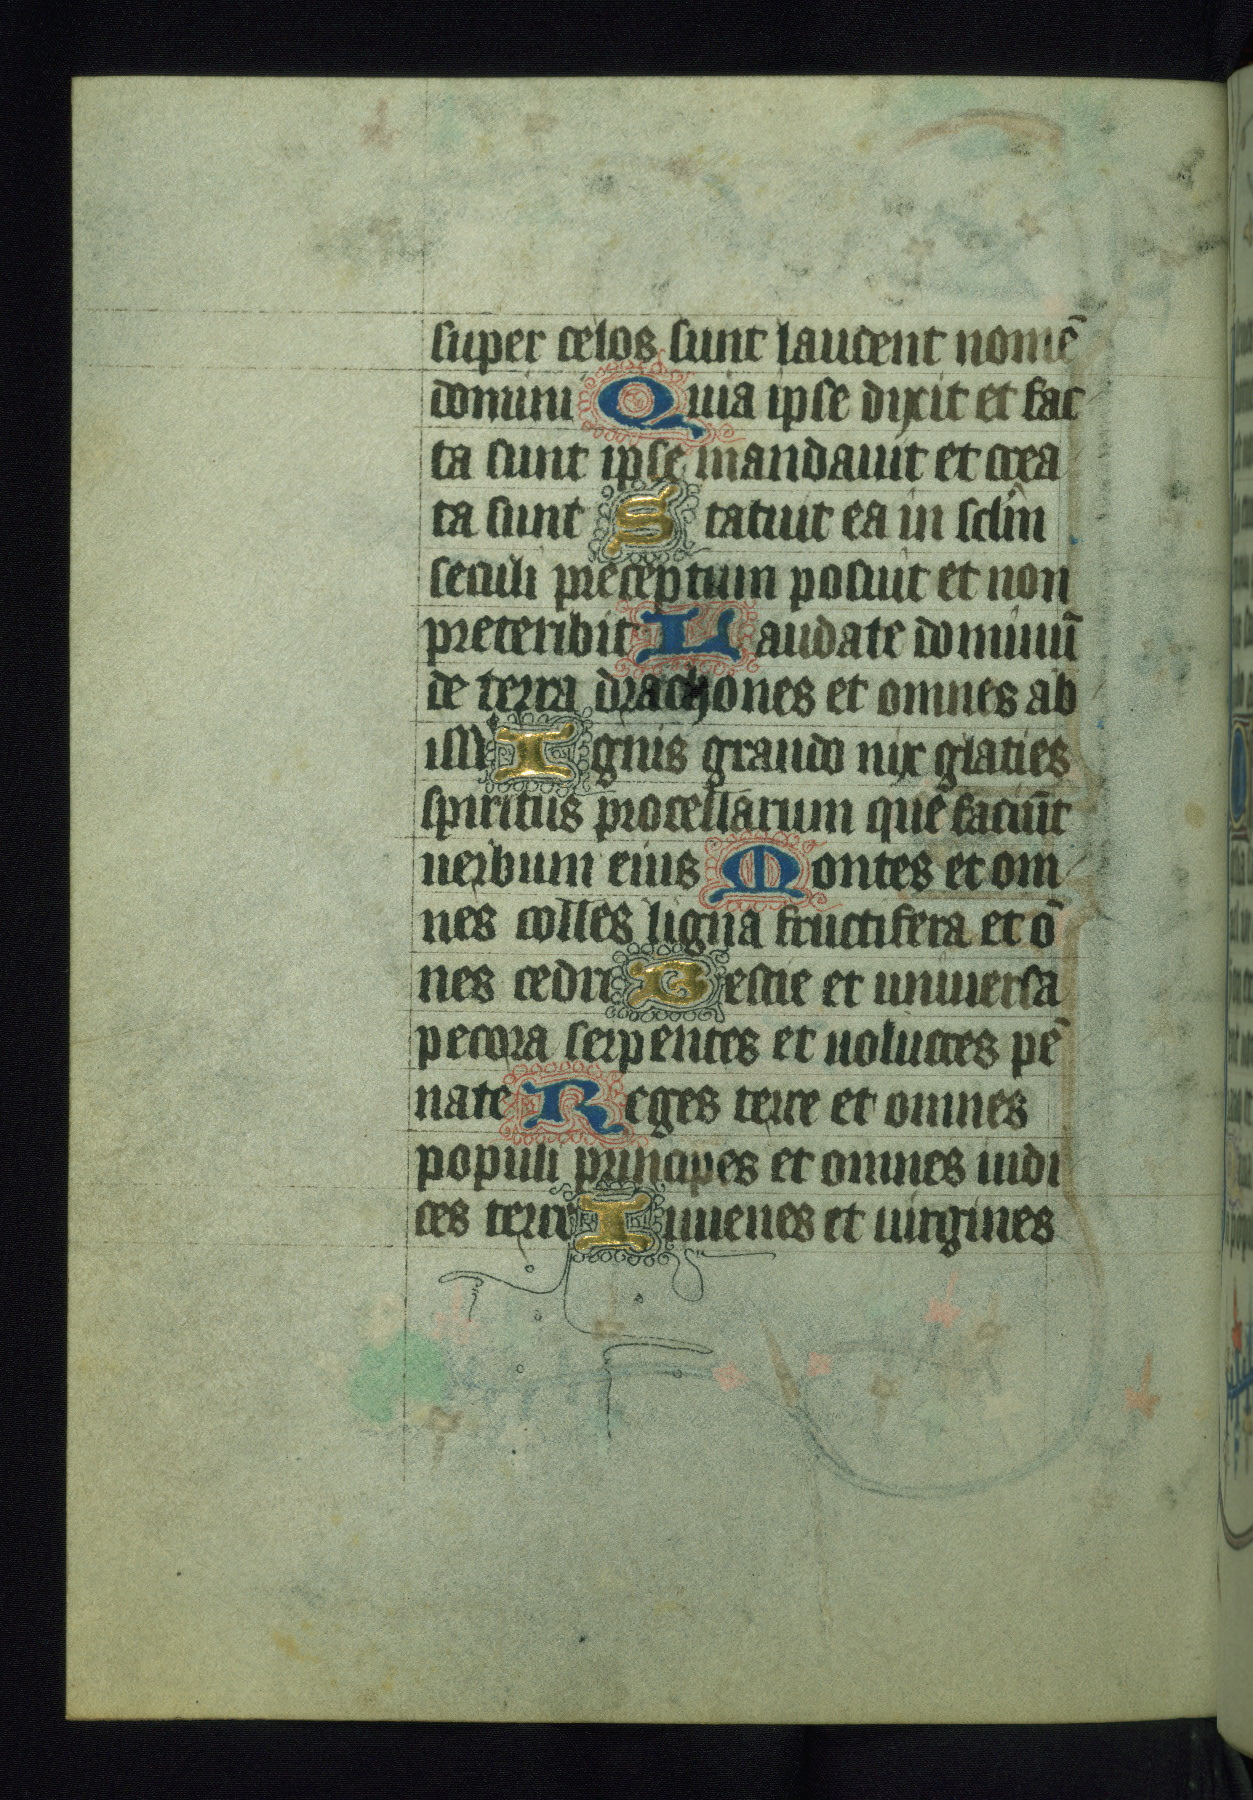 super celos sunt laudent nomē
domini Quia ipse dixit et fac
ta sunt ipse mandauit et crea
ta sunt Statuit ea in sclm̄
seculi preceptum posuit et non
preteribit Laudate dominū
de terra drachones et omnes ab
issi Ignis grando nix glacies
spiritus procellarum quē faciūt
uerbum eius Montes et om
nes colles ligna fructifera et ō
nes cedri Bestie et uniuersa
pecora serpentes et uolucres pē
nate Reges terre et omnes
populi principes et omnes iudi
ces terre Iuuenes et uirgines